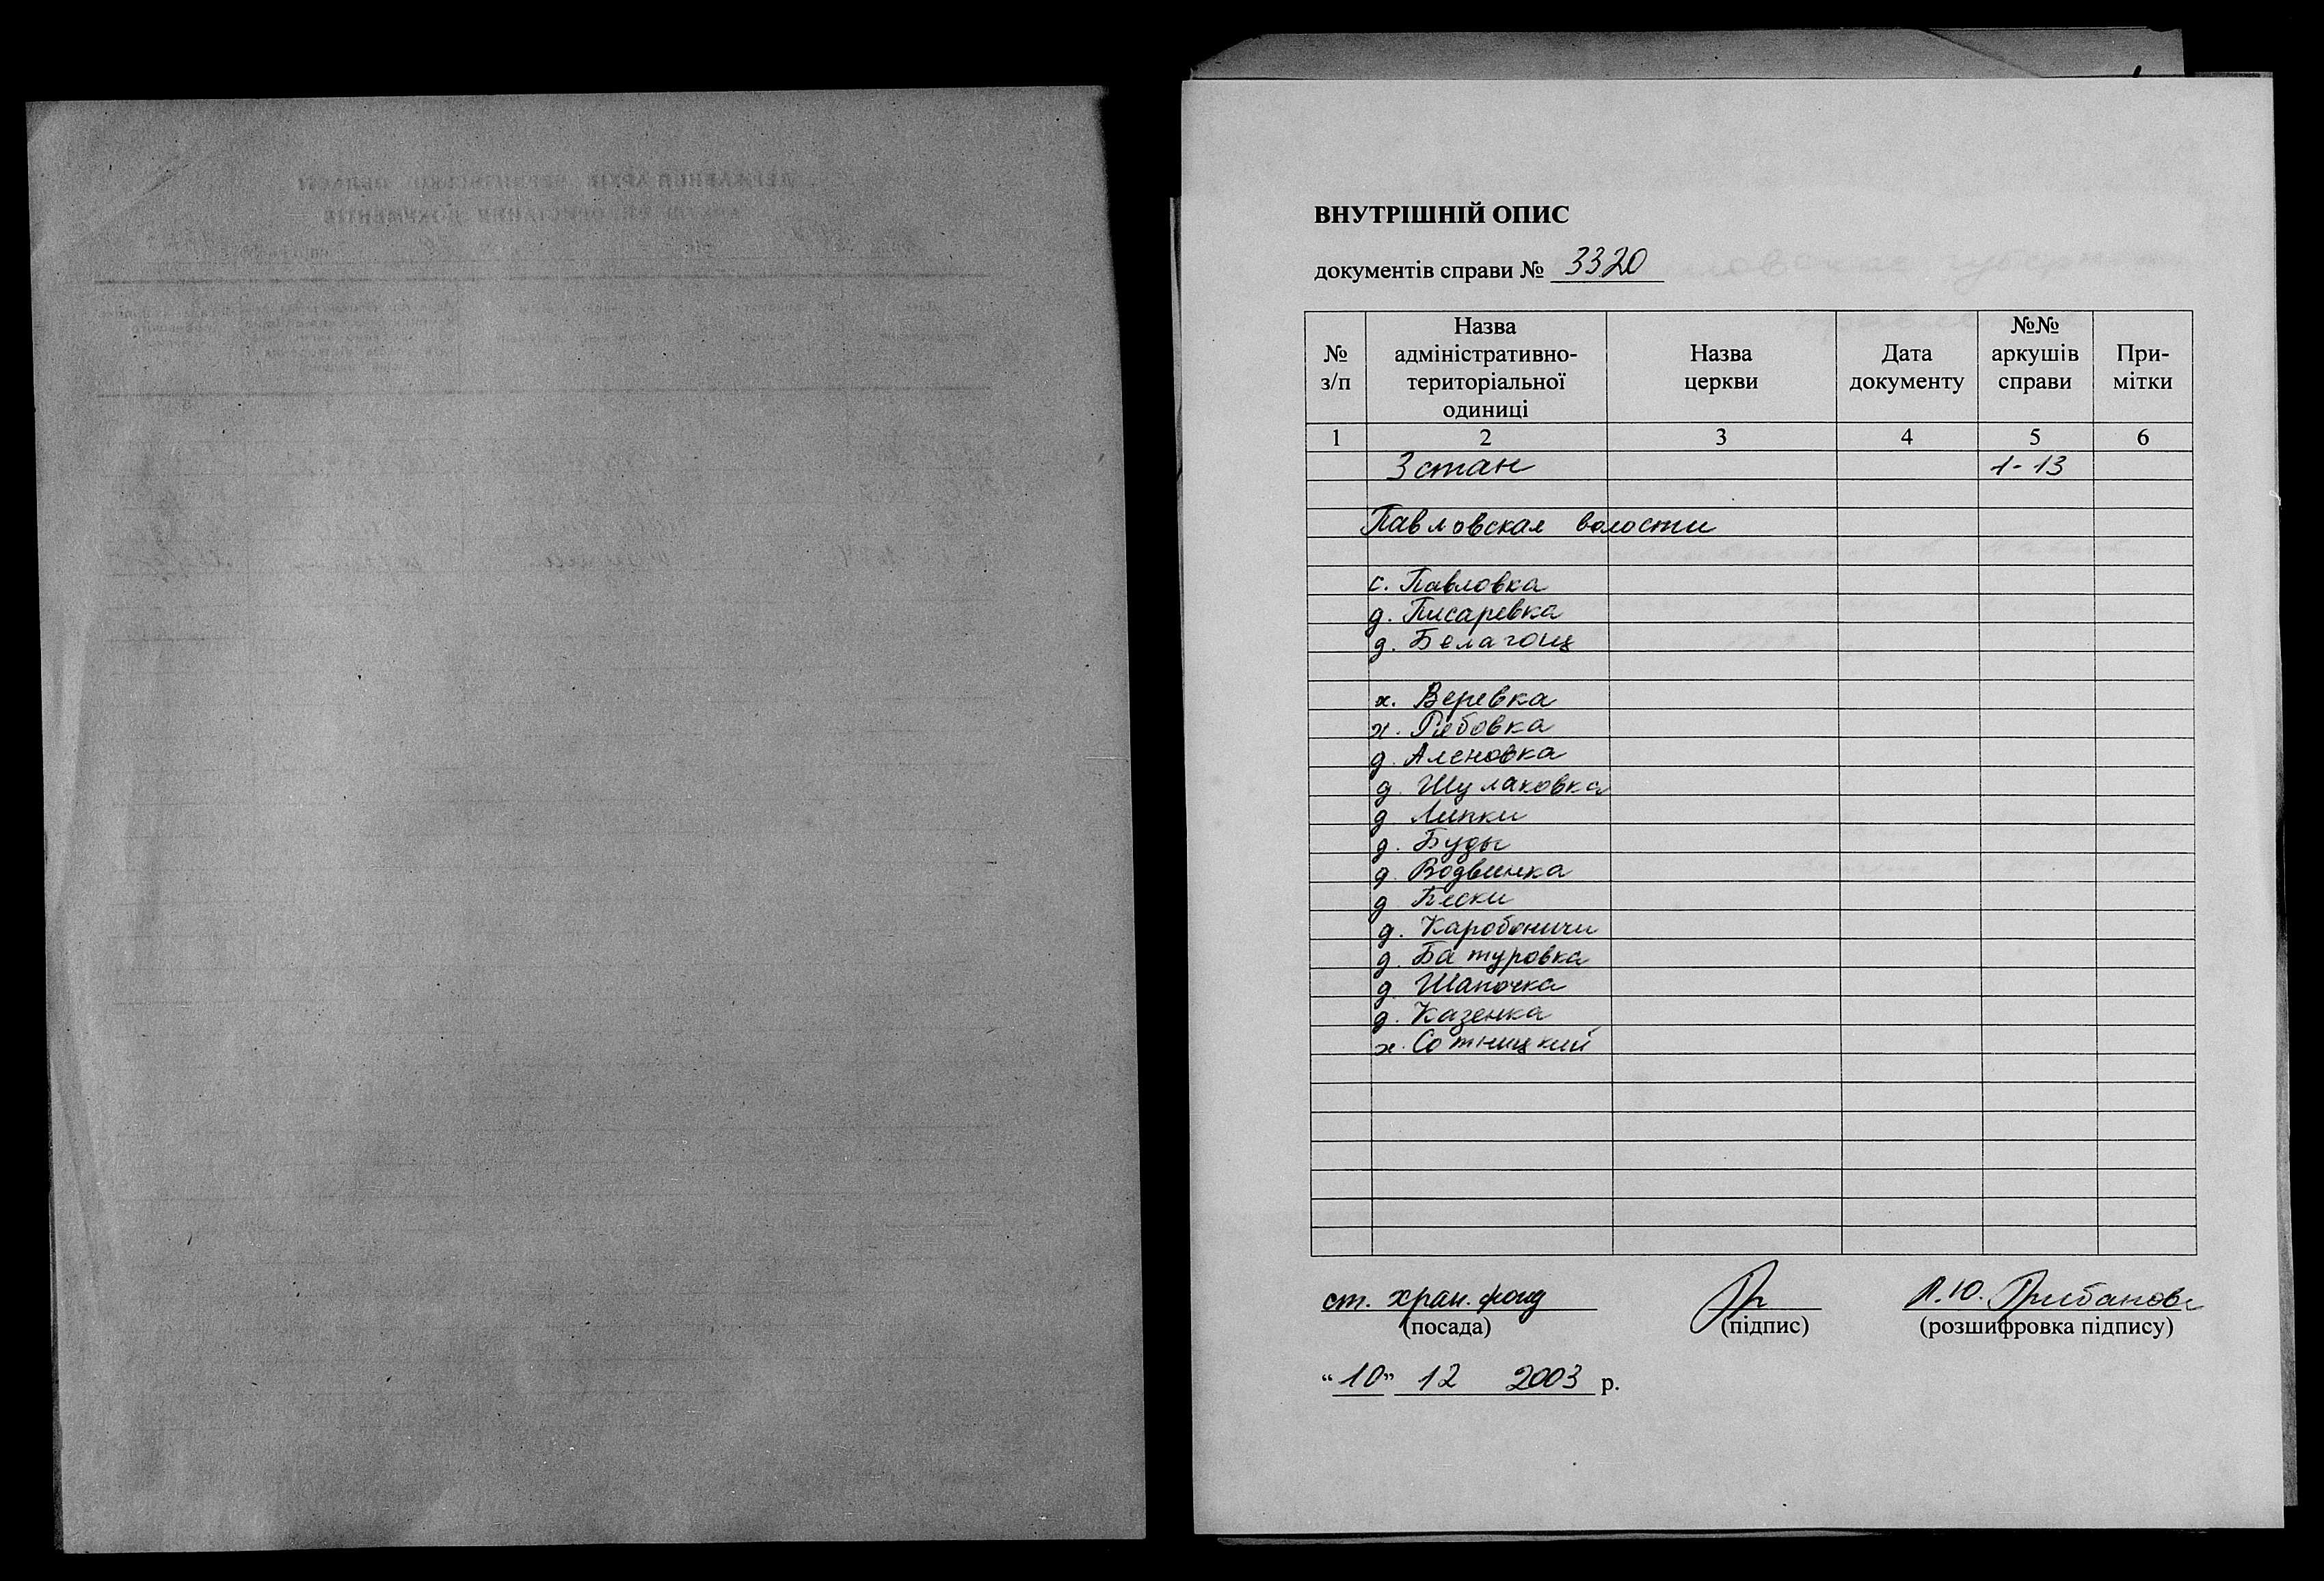 ВНУТРІШНІЙ ОПИС
документів справи № 3320
№ з/п
Назва адміністративно-територіальної одиниці
Назва церкви
Дата документу
№№ аркушів справи
При-мітки
1 2 3 4 5 6
3 стан 1-13
Павловская волости
с. Павловка
д. Писаревка
д. Белагощ
х. Веревка
х. Рябовка
д. Аленовка
д. Шулаковка
д Липки
д. Буды
д. Водвинка
д Пески
д. Каробоничи
д. Батуровка
д. Шапочка
д. Казенка
х. Сотницкий
ст. хран. фонд
(посада) (підпис) (розшифровка підпису)
“10” 12 2003 р.